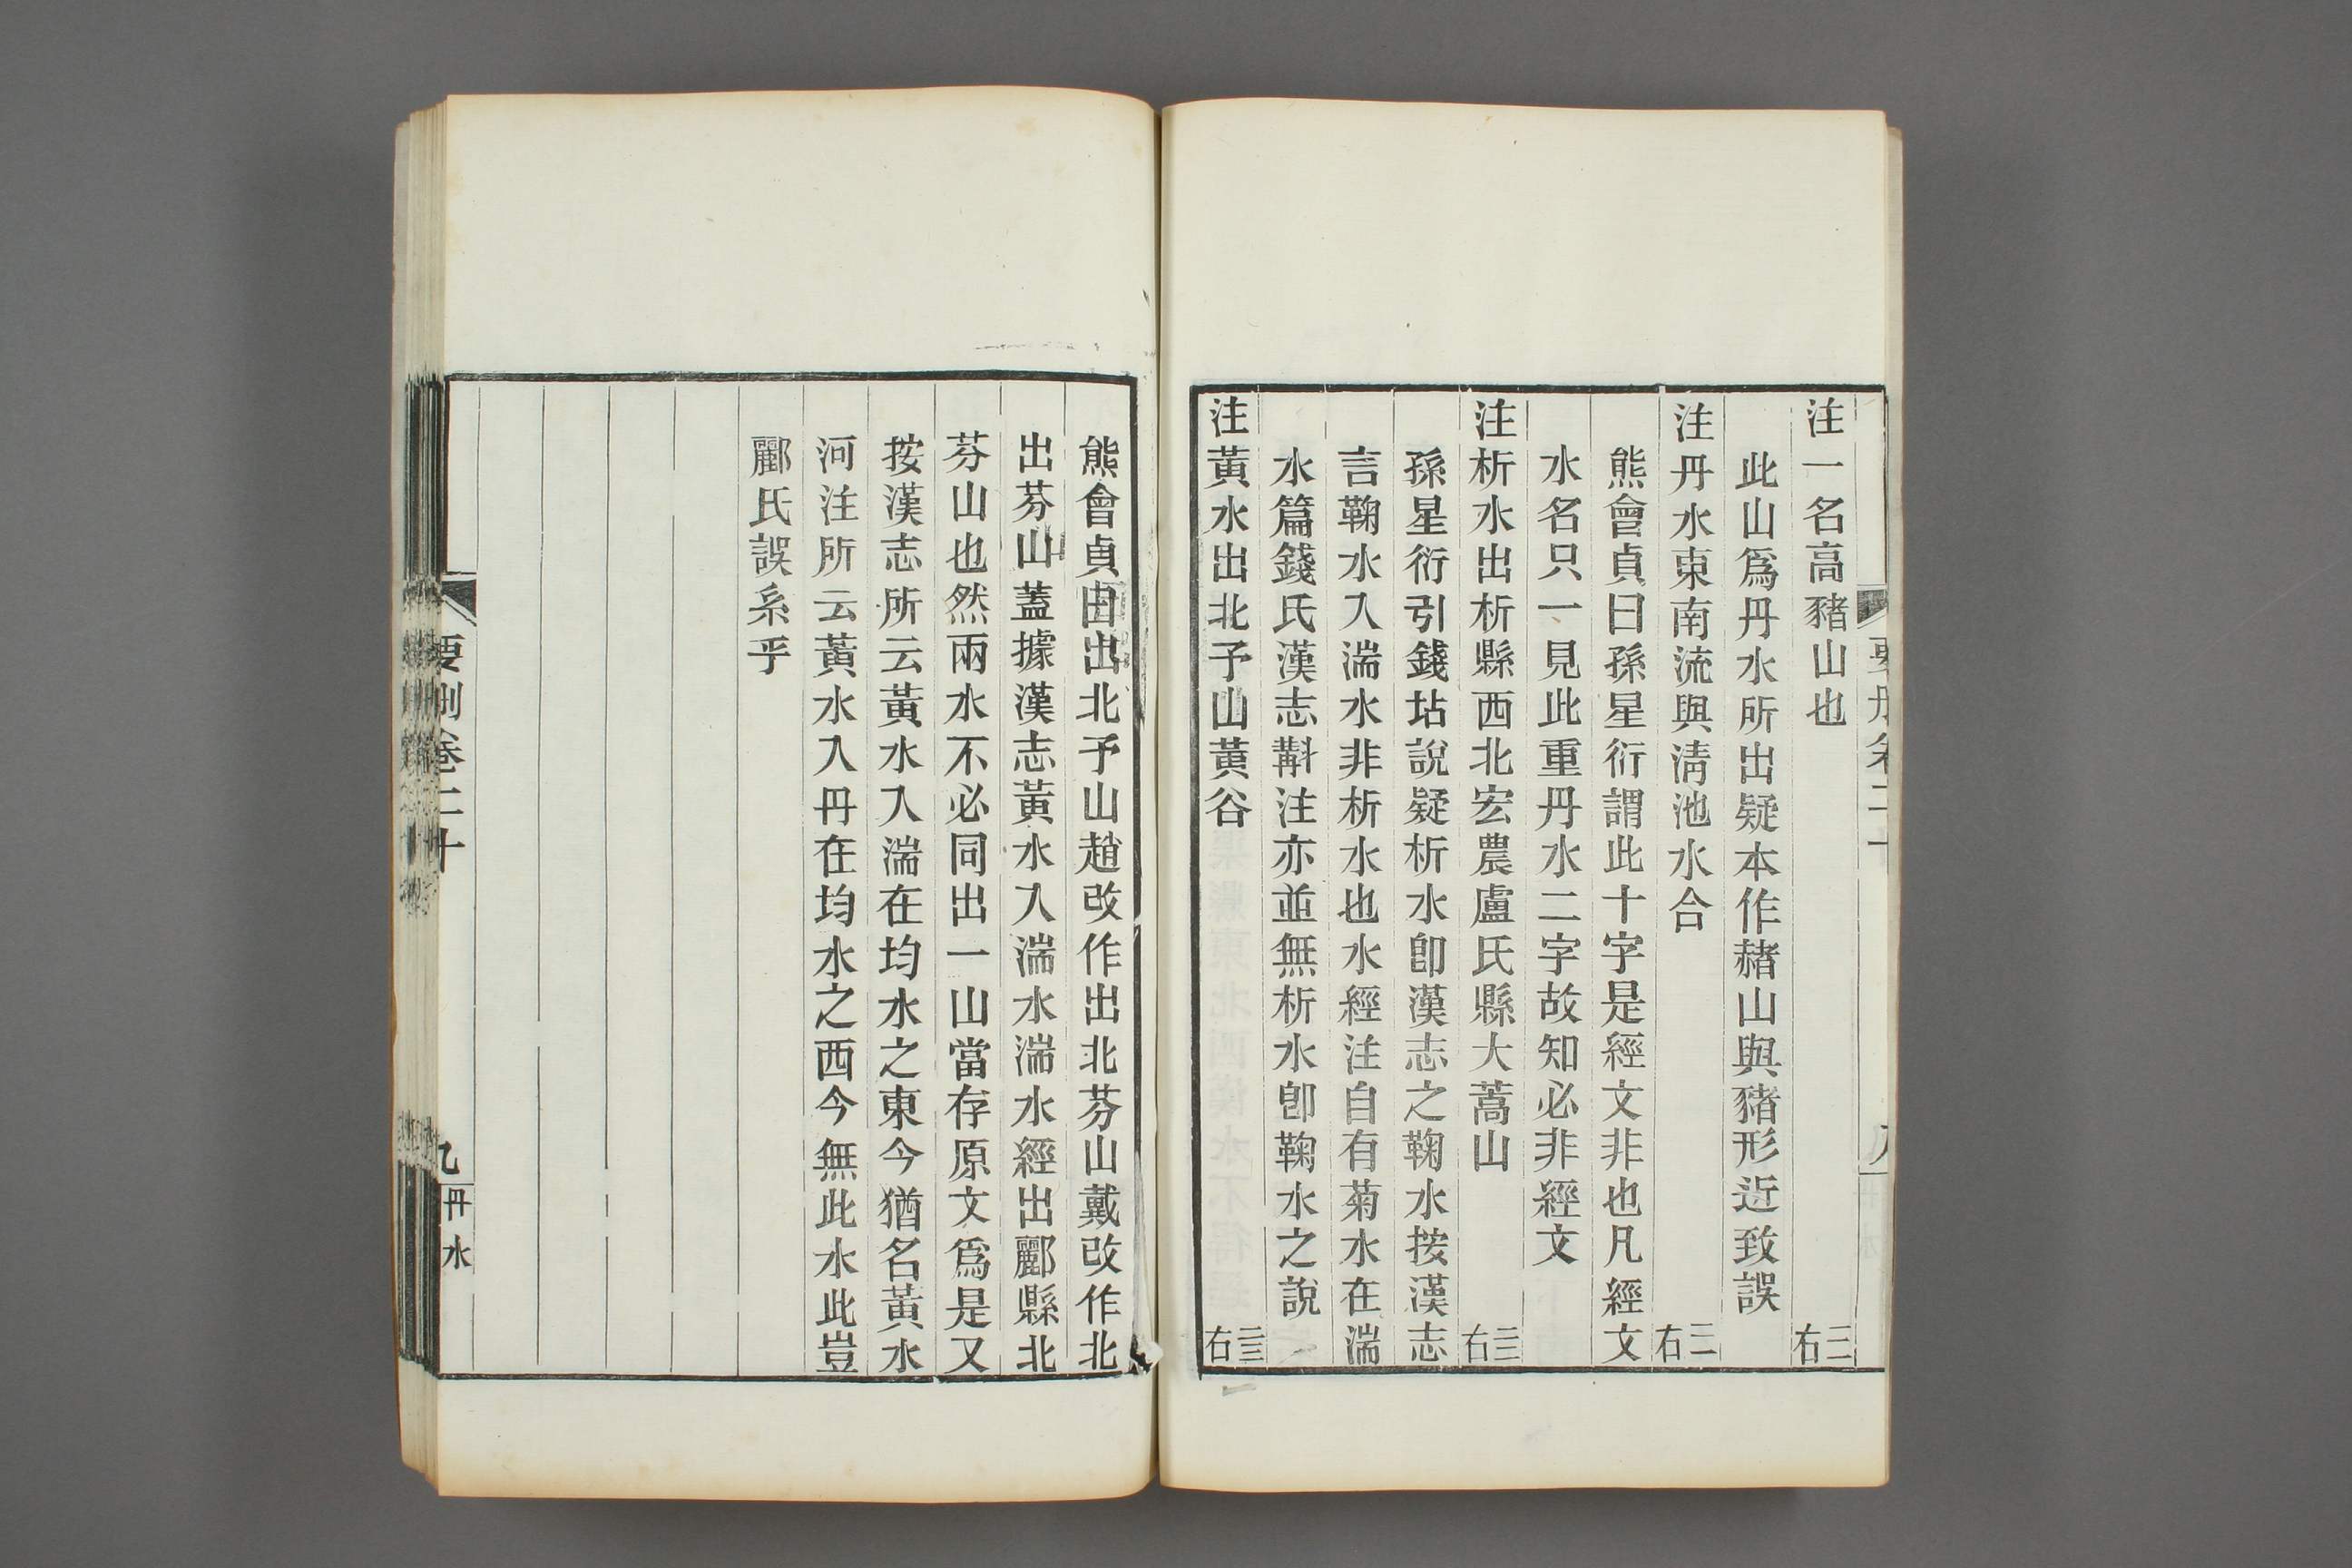 注一名高豬山也 二右
此山爲丹水所出疑本作赭山與豬形近致誤
注丹水東南流與淸池水合 二右
熊會貞曰孫星衍謂此十字是經文非也凡經文
水名只一見此重丹水二字故知必非經文
注析水出析縣西北宏農盧氏縣大蒿山 三右
孫星衍引錢坫說疑析水卽漢志之鞠水按漢志
言鞠水入湍水非析水也水經注自有菊水在湍
水篇錢氏漢志斠注亦並無析水卽鞠水之說
注黃水出北予山黃谷 三右
熊會貞出北予山趙改作出北芬山戴改作北
出芬山蓋據漢志黃水入湍水湍水經出酈縣北
芬山也然兩水不必同出一山當存原文爲是又
按漢志所云黃水入湍在均水之東今猶名黃水
河注所云黃水入丹在均水之西今無此水此豈
酈氏誤系乎
要刪卷二十
丹水